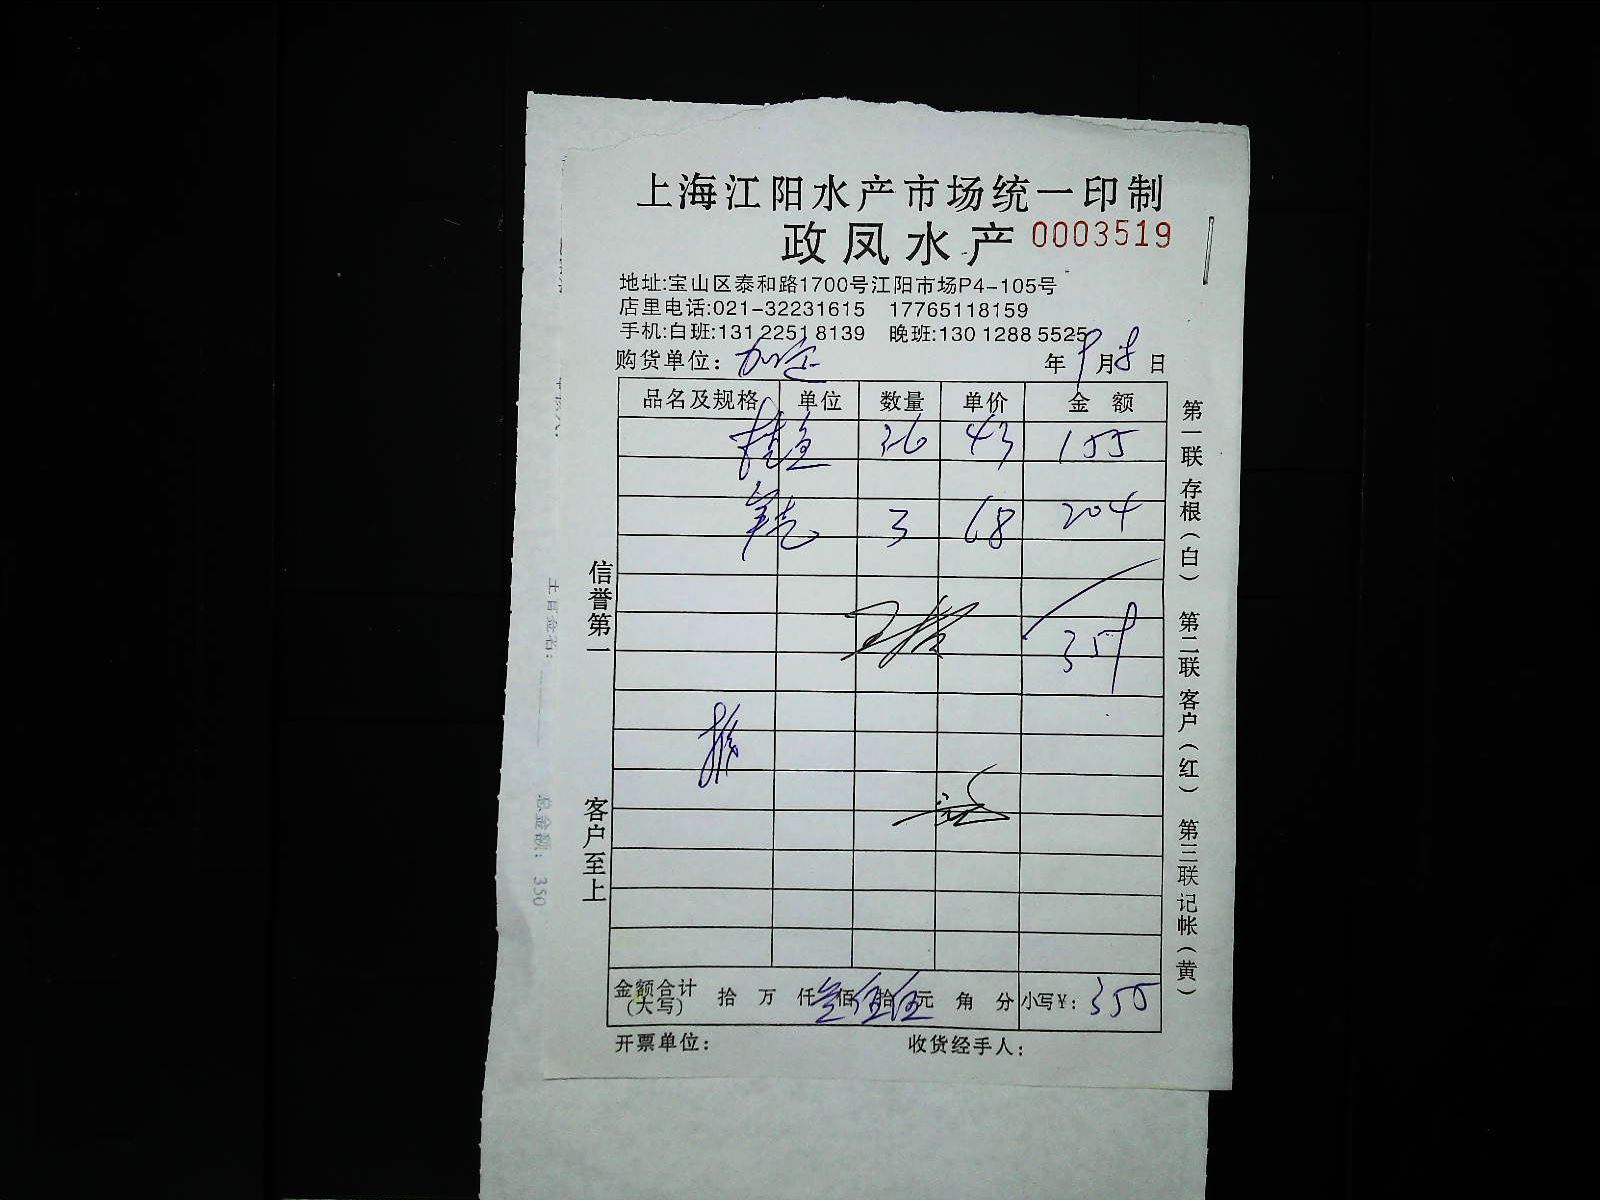 上海江阳水产市场统一印制
政凤水产 0003519
地址:宝山区泰和路1700号江阳市场P4-105号
店里电话:021-32231615 17765118159
手机:白班:131 2251 8139 晚班:130 1288 5525
购货单位: 年9月8日
品名及规格 单位 数量 单价 金额
桂鱼 36 43 155
3 68 204
359
信誉第一
客户至上
第一联存根(白) 第二联客户(红) 第三联记帐(黄)
金额合计(大写) 拾万仟叁佰伍拾伍元角分 小写¥: 355
开票单位: 收货经手人:
总金额: 350